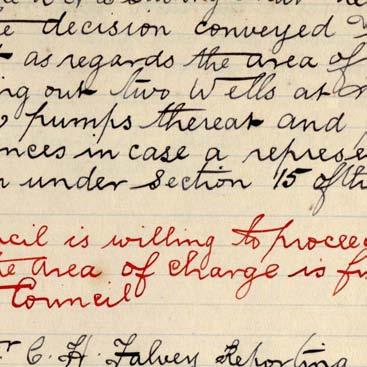 decision conveyed
as regards the area of
ing out two Wells at
pumps thereat and
nces in case a represe
under Section 15 of th
ncil is willing to proceed
e area of charge is fi
Council
r C. H. Falvey Reporting